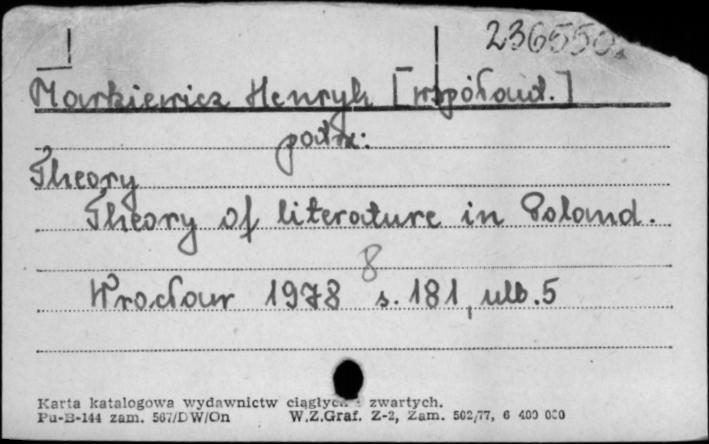 Markiewicz Henryk [współaut.]
patrz:
Theory
Theory of literature in Poland.
8
Wrocław 1978 s. 181, nlb. 5
Karta katalogowa wydawnictw ciągłych i zwartych.
Pu-B-144 zam. 567/DW/On W.Z.Graf. Z-2, Zam. 502/77, 6 400 000